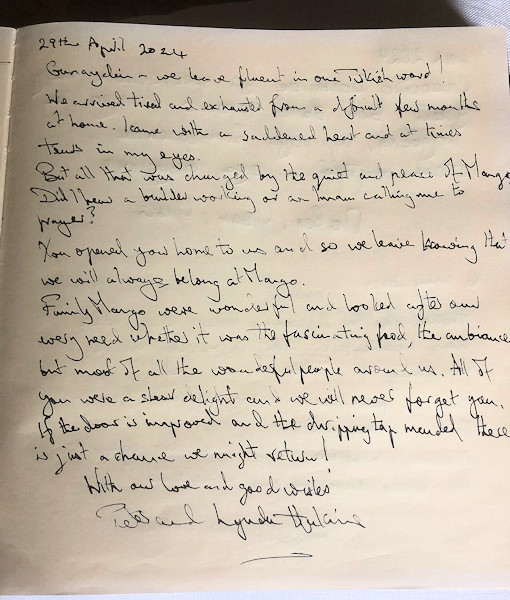 29th April 2024
Gunaydin - we leave fluent in one Turkish word!
We arrived tired and exhausted from a difficult few months
at home. I came with a saddened heart and at times
tears in my eyes.
But all that was changed by the quiet and peace of Mango.
Did I hear a builder working or an Imam calling me to
prayer?
You opened your home to us and so we leave knowing that
we will always belong at Mango.
Family Mango were wonderful and looked after our
every need whether it was the fascinating food, the ambiance
but most of all the wonderful people around us. All of
you were a sheer delight and we will never forget you.
If the door is improved and the dripping tap mended there
is just a chance we might return!
With our love and good wishes
and Lynda